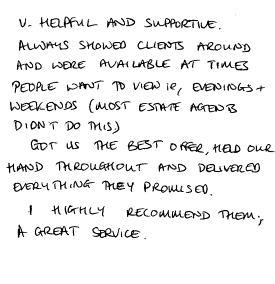 V. HELPFUL AND SUPPORTIVE.
ALWAYS SHOWED CLIENTS AROUND
AND WERE AVAILABLE AT TIMES
PEOPLE WANT TO VIEW ie, EVENINGS +
WEEKENDS (MOST ESTATE AGENTS
DIDN'T DO THIS)
GOT US THE BEST OFFER, HELD OUR
HAND THROUGHOUT AND DELIVERED
EVERYTHING THEY PROMISED.
I HIGHLY RECOMMEND THEM;
A GREAT SERVICE.